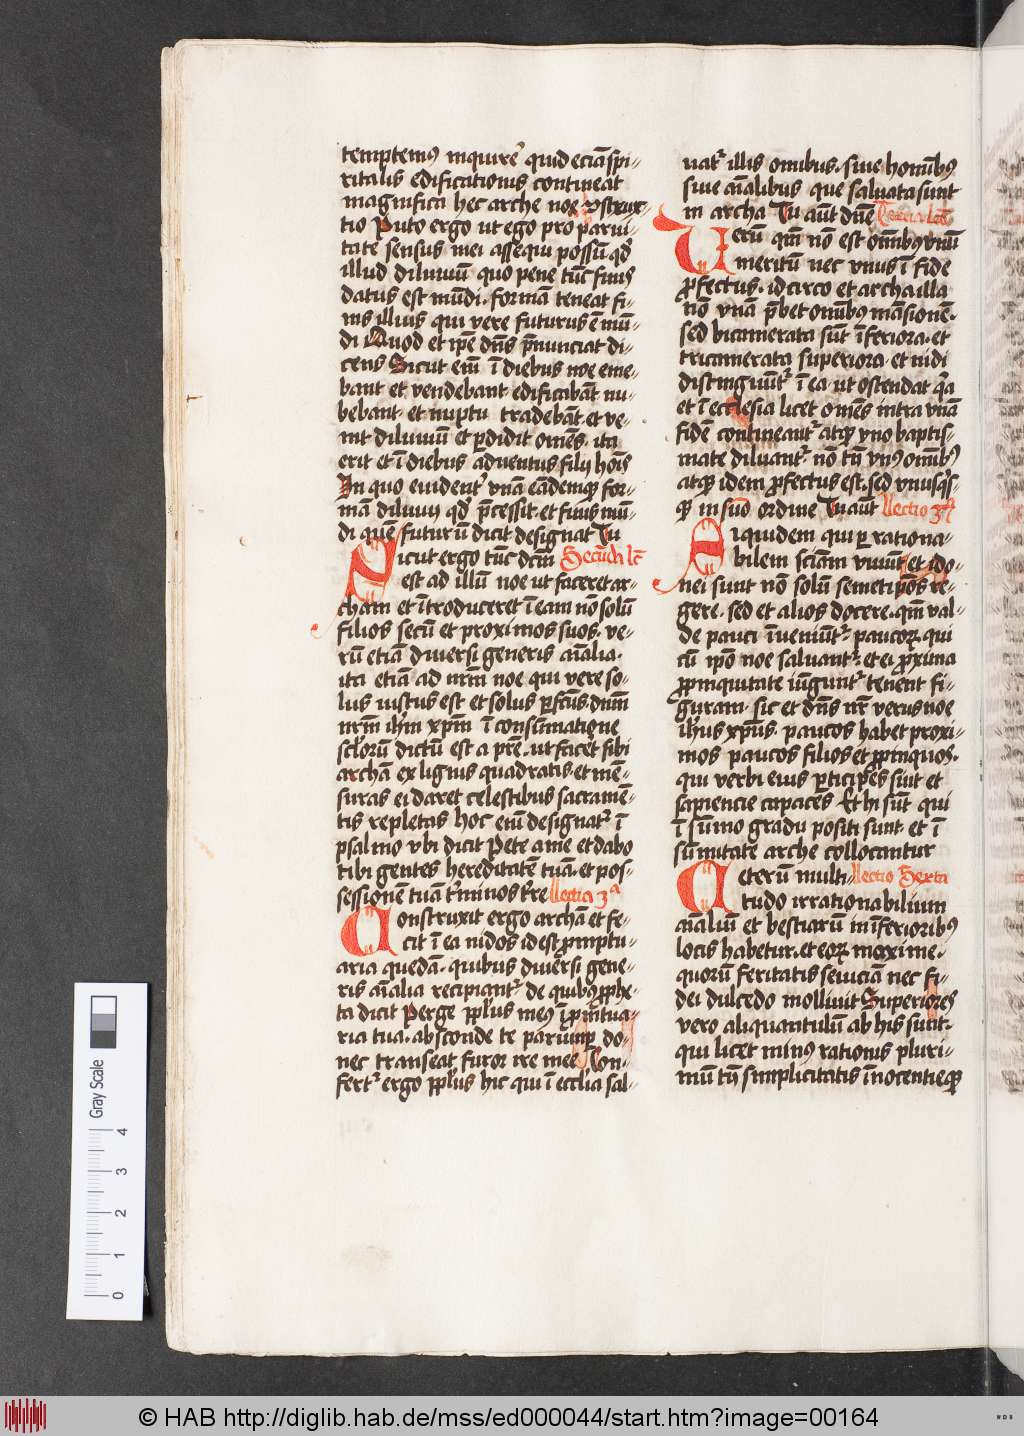 temptem9 inquire quid eciā spi-
ritalis edificationis contineat
magnifica hec arche noe
tio Puto ergo ut ego pro parui-
tate sensus mei assequi possū qd
illud diluuiū quo pene tūc finis
datus est mūdi. formā teneat fi-
nis illius qui vere futurus ē mū-
di Quod et ipe dns p̄nunciat di-
cens Sicut em̄ ī diebus noe eme-
bant et vendebant edificabāt nu-
bebant et nuptu tradebāt et ve-
nit diluuiū et pdidit omēs. ita
erit et ī diebus aduentus filij hoīs
In quo euident' vnā eādemq for-
mā diluuij qd p̄cessit. et finis mū-
di quē futurū dicit designat Tu
Sicut ergo tūc dcm̄ Secūda lc̄
est ad illū noe ut faceret ar-
cham et ītroduceret ī eam nō solū
filios secū et proximos suos. ve-
rū etiā diuersi generis aīalia.
ita etiā ad nrm̄ noe qui vere so-
lus iustus est et solus pfcūs. dnm̄
nrm̄ ihm̄ xpm̄ ī consūmatione
sclorū dictū est a pre. ut facet sibi
archā ex lignis quadratis. et mē-
suras ei daret celestibus sacramē-
tis repletas hoc em̄ designat' ī
psalmo vbi dicit Pete a me et dabo
tibi gentes hereditatē tuā. et pos-
sessionē tuā t'minos t're Lectio 3ª
Construxit ergo archā et fe-
cit ī ea nidos id est promptu-
aria quedā. quibus diuersi gene-
ris aīalia recipiant'. de quibus pphe-
ta dicit Perge pplus me9 ī promtua-
ria tua. absconde te pariump do-
nec transeat furor ire mee Con-
fert' ergo pplus hic qui ī ecclia sal-
uat' illis omibus. siue homib9
siue aīalibus que saluata sunt
in archa Tu aūt dnē
Uerū qm̄ nō est omib9 vnū
meritū nec vnus ī fide
profectus. idcirco et archa illa
nō vnā p̄bet omib9 māsionē.
sed bicamerata sūt īferiora. et
tricamerata superiora. et nidi
distinguūt' ī ea ut ostendat qa
et ī ecclesia licet omēs intra vnā
fidē contineant' atq vno baptis-
mate diluant'. nō tn̄ vn9 omib9
atq idem profectus est. sed vnusqs-
q in suo ordine Tu aūt Lectio
Hi quidem qui p rationa-
bilem sciam viuūt et ido-
nei sunt nō solū semetipos re-
gere. sed et alios docere. qm̄ val-
de pauci īueniūt'. paucorum qui
cū ipo noe saluant'. et ei proxima
propinquitate iūgunt'. tenent fi-
guram. sic et dns nr̄ verus noe
ihus xpus. paucos habet proxi-
mos paucos filios et propinquos.
qui verbi eius pticipes sint et
sapiencie capaces Et hi sūt qui
ī sūmo gradu positi sunt. et ī
sūmitate arche collocantur
Ceterū multi- Lectio Sexta
tudo irrationabilium
aīaliū et bestiarū in īferioribus
locis habetur. et eorum maxime.
quorū feritatis seuiciā nec fi-
dei dulcedo molliuit Superiores
vero aliquantulū ab his sunt.
qui licet min9 rationis pluri-
mū tn̄ simplicitatis īnocentieq
Gray Scale
4
3
2
1
0
© HAB http://diglib.hab.de/mss/ed000044/start.htm?image=00164